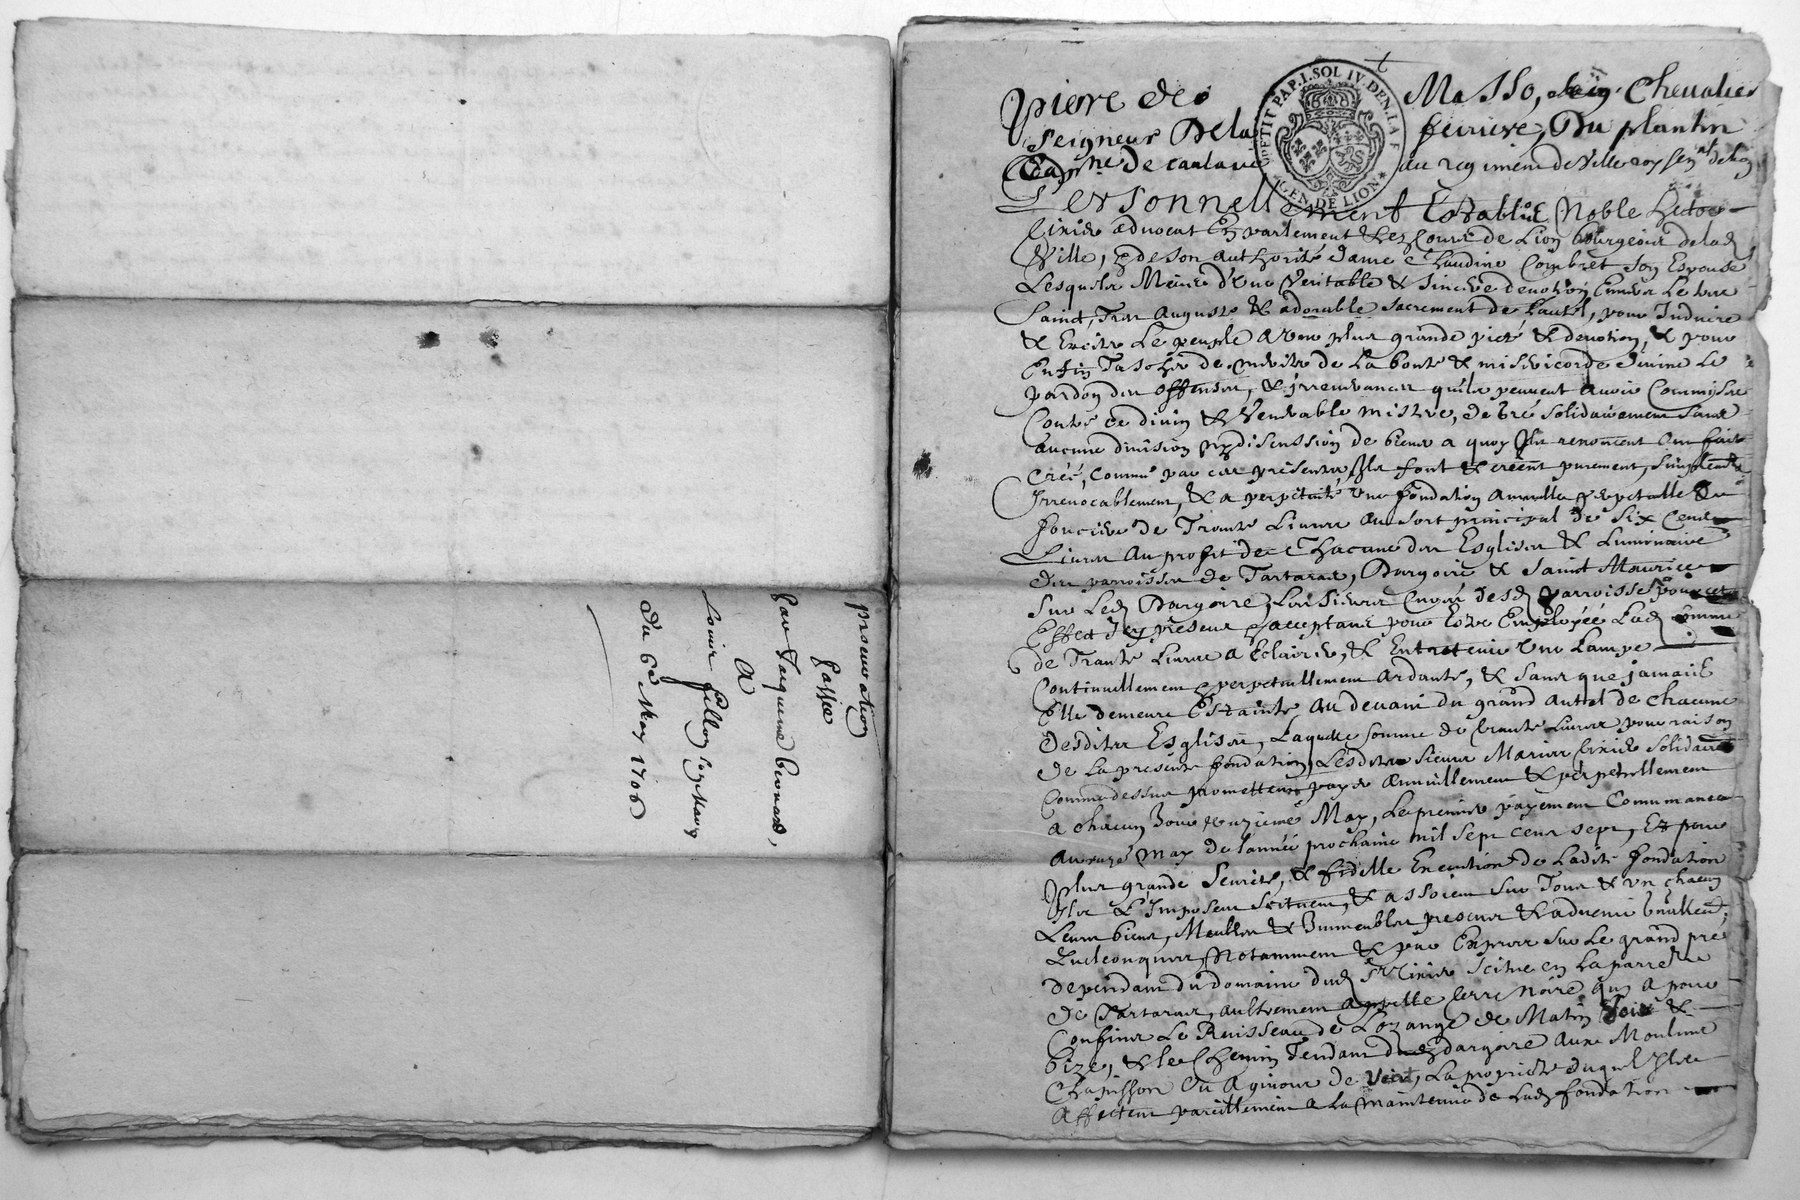 procuration
passée
par Jacqueme bernard,
A
Louis fillon
Du 6e May 1706
PETIT PAP. 1. SOL IV. DEN. LA F.
GEN. DE LION
pierre de Masso, Chevalier
Seigneur Dela ferriere, Du plantin
de caulaie du regiment de Villeroy
Personnellement Establis Noble Hector
Ciride advocat En parlement & Ez Cours de Lion bourgeois delad
Ville, & de son authorité dame Claudine Combret son Espouse
Lesquels Meus d'une Veritable & sincere devotion Envers Le tres
Sainct, Tres Auguste & adorable Sacrement de Lautel, pour Induire
& Exciter Le peuple a une plus grande pieté & devotion, & pour
Enfin Tascher de meriter de La bonté & misericorde divine Le
pardon des offenses, & irreverances quils peuvent avoir Commises
Contre ce divin & Venerable mistere, de gré solidairement sans
aucune division ny discussion de biens a quoy Ils renoncent ont fait
Créé, comme par ces presentes Ils font & créent purement, simplement
Irrevocablement, & a perpetuité une fondation annuelle perpetuelle &
fonciere de Trante Livres au sort principal de Six Cent
Livres au profit de Chacune des Esglises & Luminaire
des parroisses de Tartaras, Dargoire & Saint Maurice
Sur Led Dargoire, Les Sieurs Curés desd parroisses pour cet
Effect Icy presens & acceptans pour Estre Employée Lad somme
de Trante Livres a Eclairer, & Entretenir une Lampe
Continuellement & perpetuellement ardante, & sans que jamais
Elle demeure Estainte au devant du grand Autel de chacune
desdites Esglises, Laquelle somme de trante Livres pour raison
de La presente fondation, Lesdits sieurs Mariés Ciride solidaires
Comme dessus promettent payer annuellement & perpetuellement
a chacun Jour onzieme May, Le premier payement Commancera
au onze May de l'année prochaine mil sept cens sept, Et pour
plus grande Seurté, & fidelle Execution de Ladite fondation
Ils L'Imposent scituent, & assoient sur Tous & un chacun
Leurs biens, Meubles & Immeubles presens & advenir
Quelconques, Notamment & par Exprés sur Le grand pré
dependant du domaine dud Sr Ciride Scitue en La parroisse
de Tartaras, aultrement appellé terre Noire qui a pour
Confins Le Ruisseau de Lozange de Matin Soir &
bize, & le Chemin Tendant de dargoire aux Moulins
Chapisson de Vent, La proprieté duquel Ils
affectent pareillement a La maintenue de Lad fondation